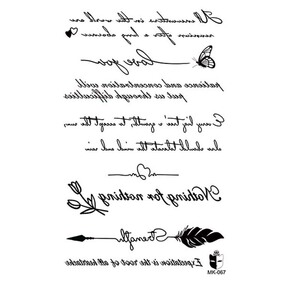 All encounters in the world are
reunion after a long absence
love you
patience and concentration will
put us through difficulties
Every big tree is gentle, to accept the sun,
has should tolerate the wind and rain
Nothing for nothing
Strength
Expectation is the root of all heartache
MK-067